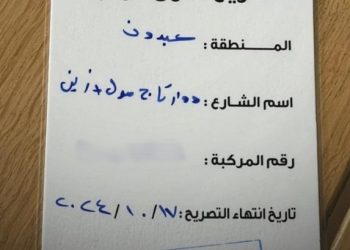 المنطقة : عبدون
اسم الشارع : دوار تاج مول + زين
رقم المركبة :
تاريخ انتهاء التصريح : ٢٠٢٤/١٠/١٧